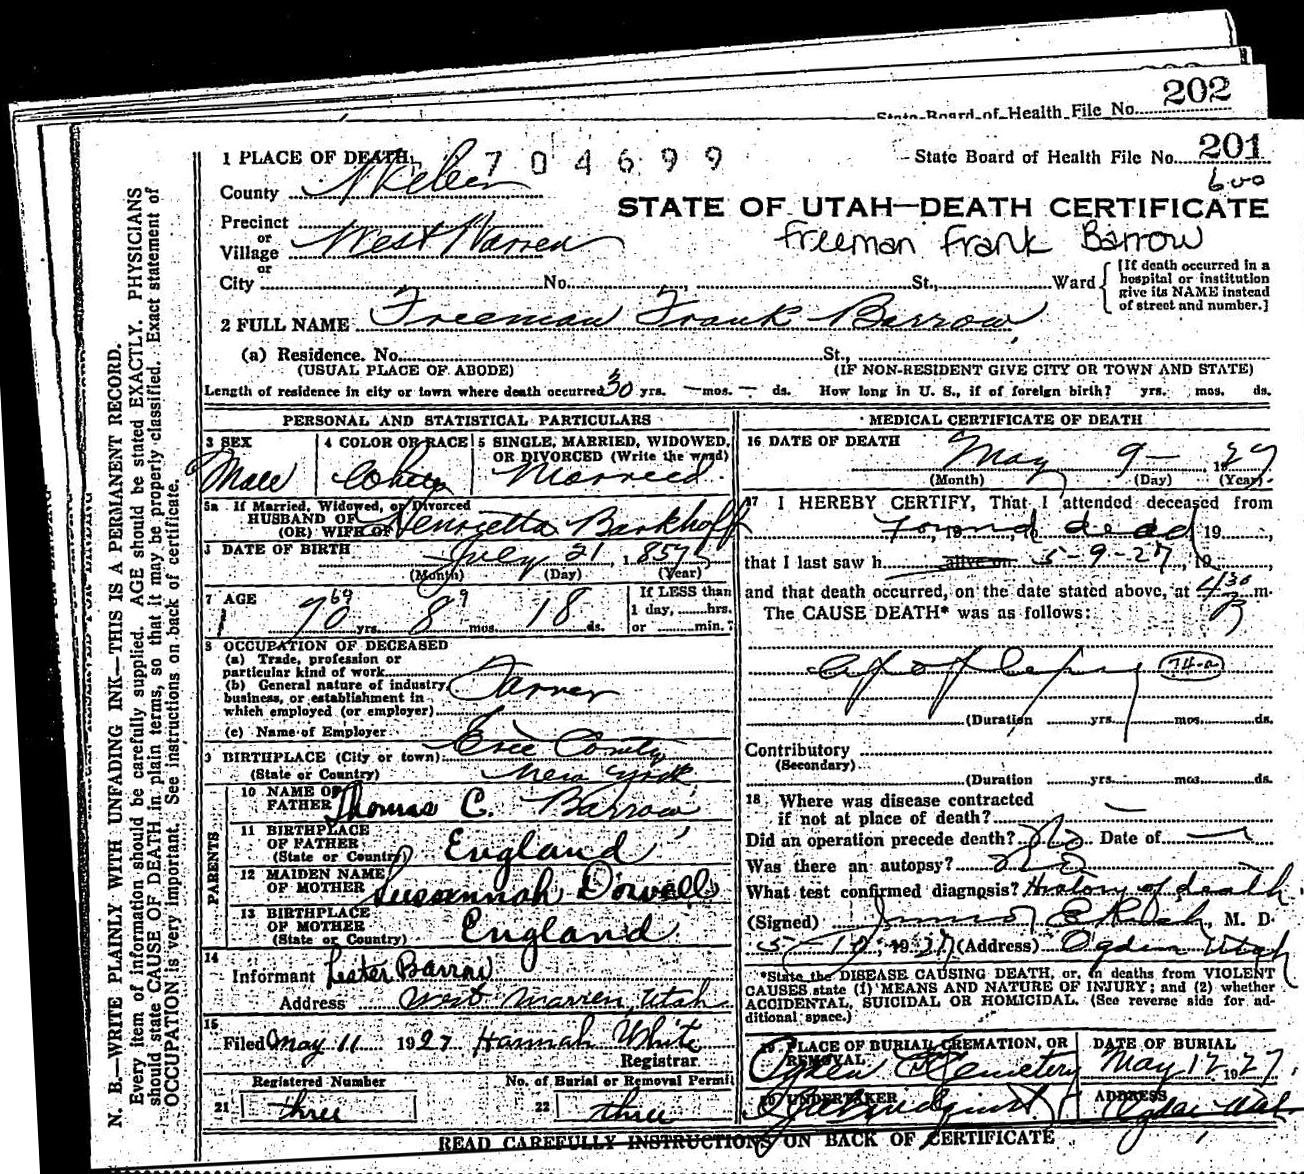 202
State Board of Health File No.
1 PLACE OF DEATH
704699
State Board of Health File No. 201
County Weber
600
STATE OF UTAH—DEATH CERTIFICATE
Precinct
or
Village West Warren
Freeman Frank Barrow
or
City No. , St., Ward
[If death occurred in a
hospital or institution
give its NAME instead
of street and number.]
2 FULL NAME Freeman Frank Barrow
(a) Residence. No. St.,
(USUAL PLACE OF ABODE) (IF NON-RESIDENT GIVE CITY OR TOWN AND STATE)
Length of residence in city or town where death occurred 30 yrs. — mos. — ds. How long in U. S., if of foreign birth? yrs. mos. ds.
PERSONAL AND STATISTICAL PARTICULARS
3 SEX 4 COLOR OR RACE 5 SINGLE, MARRIED, WIDOWED,
OR DIVORCED (Write the word)
Male White Married
5a If Married, Widowed, or Divorced
HUSBAND OF
(OR) WIFE OF Henrietta Barkhoff
DATE OF BIRTH July 21, 1857
(Month) (Day) (Year)
7 AGE 70 69 yrs. 8 9 mos. 18 ds.
If LESS than
1 day, hrs.
or min.?
8 OCCUPATION OF DECEASED
(a) Trade, profession or
particular kind of work
Farmer
(b) General nature of industry,
business, or establishment in
which employed (or employer)
(c) Name of Employer
9 BIRTHPLACE (City or town) Erie County
(State or Country) New York
PARENTS
10 NAME OF
FATHER Thomas C. Barrow
11 BIRTHPLACE
OF FATHER
(State or Country) England
12 MAIDEN NAME
OF MOTHER Susannah Dowell
13 BIRTHPLACE
OF MOTHER
(State or Country) England
14
Informant Lester Barrow
Address West Warren, Utah
15
Filed May 11 1927 Hannah White
Registrar.
Registered Number No. of Burial or Removal Permit
21 three 22 three
MEDICAL CERTIFICATE OF DEATH
16 DATE OF DEATH
May 9—, 1927
(Month) (Day) (Year)
17 I HEREBY CERTIFY, That I attended deceased from
Found dead 19
that I last saw h alive on 5-9-27, 19
and that death occurred, on the date stated above, at 4 30 m.
The CAUSE DEATH* was as follows:
74-a
(Duration yrs. mos. ds.
Contributory
(Secondary)
(Duration yrs. mos. ds.
18 Where was disease contracted
if not at place of death? —
Did an operation precede death? No Date of —
Was there an autopsy? No
What test confirmed diagnosis? History of death
(Signed) M. D.
1927 (Address) Ogden Utah
*State the DISEASE CAUSING DEATH, or, in deaths from VIOLENT
CAUSES state (1) MEANS AND NATURE OF INJURY; and (2) whether
ACCIDENTAL, SUICIDAL OR HOMICIDAL. (See reverse side for ad-
ditional space.)
19 PLACE OF BURIAL, CREMATION, OR
REMOVAL
Ogden Cemetery
DATE OF BURIAL
May 12 1927
UNDERTAKER
ADDRESS
Ogden Utah
READ CAREFULLY INSTRUCTIONS ON BACK OF CERTIFICATE
N. B.—WRITE PLAINLY WITH UNFADING INK—THIS IS A PERMANENT RECORD.
Every item of information should be carefully supplied. AGE should be stated EXACTLY. PHYSICIANS
should state CAUSE OF DEATH in plain terms, so that it may be properly classified. Exact statement of
OCCUPATION is very important. See instructions on back of certificate.